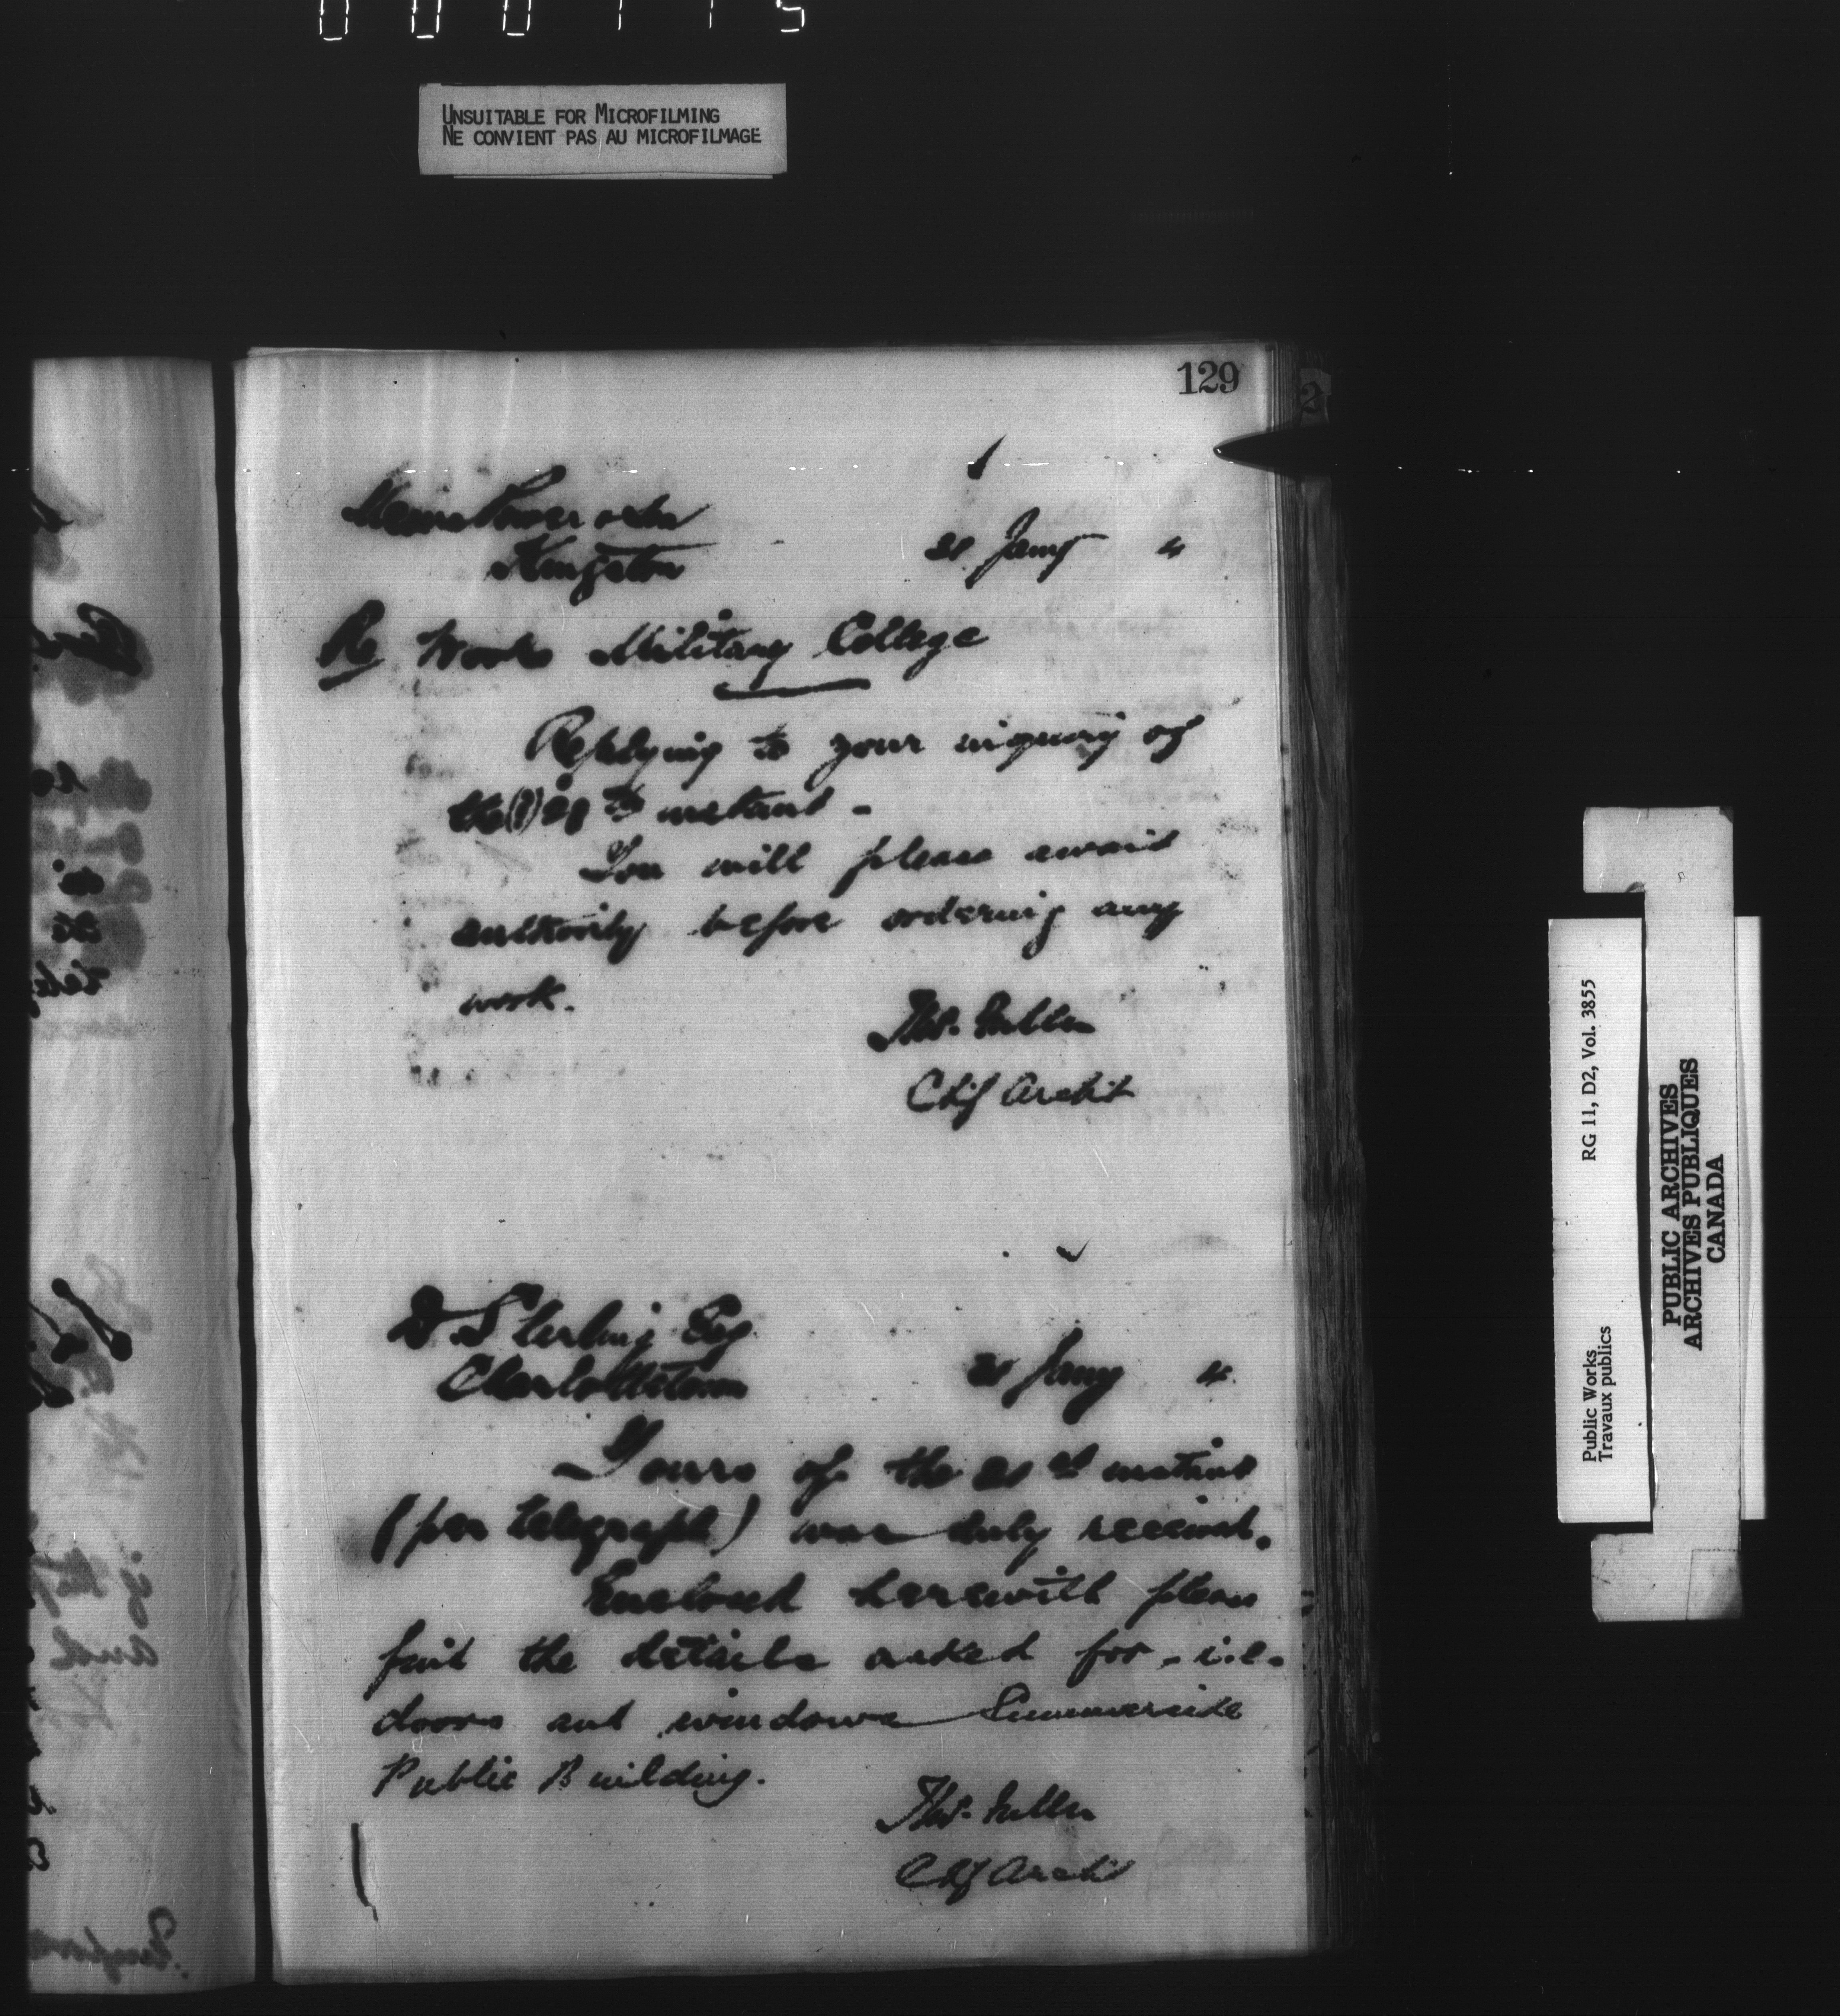 UNSUITABLE FOR MICROFILMING
NE CONVIENT PAS AU MICROFILMAGE
129
Power & Son
Kingston
21 Jany "
Re Works Military College
Replying to your inquiry of
the (?) 20th instant -
You will please await
authority before ordering any
work.
Thos. Fuller
Chf Archt
D Sterling Esq
Charlottetown
21 Jany "
Yours of the 21st instant
(per telegraph) was duly received.
Enclosed herewith please
find the details asked for - i.e.
doors and windows Summerside
Public Building.
Thos. Fuller
Chf Archt
Public Works
Travaux publics
RG 11, D2, Vol. 3855
PUBLIC ARCHIVES
ARCHIVES PUBLIQUES
CANADA